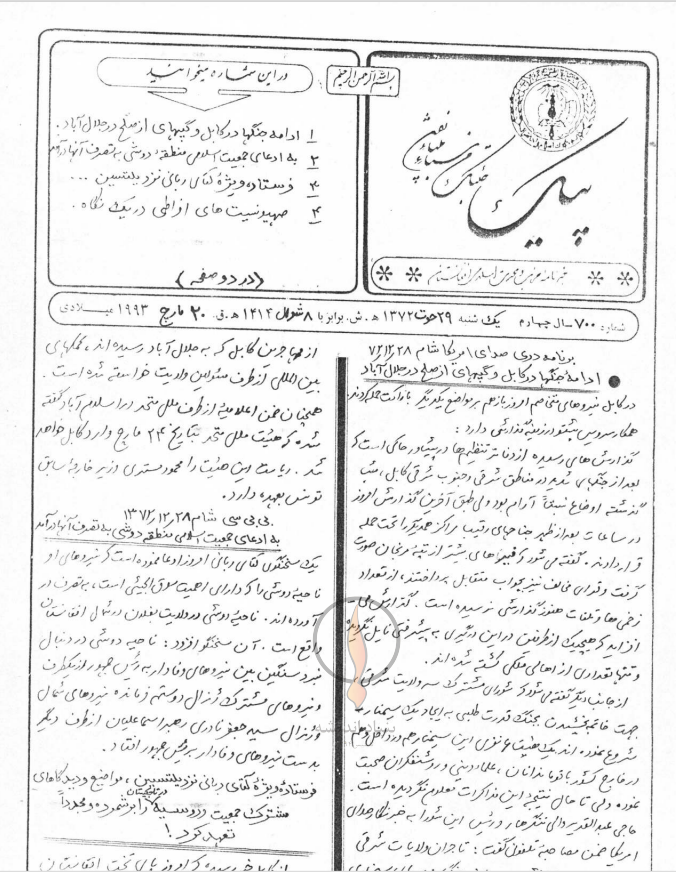 بسم الله الرحمن الرحیم
پیک
خبرنامه
در این شماره میخوانید
۱ ادامه جنگها در کابل و گپهای از صلح در جلال آباد.
۲ به ادعای جمعیت اسلامی منطقه دوشی به تصرف آنها درآمد
۳ فرستادهٔ ویژهٔ آقای ربانی نزد یلتسین ...
۴ صهیونیست های افراطی در یک نگاه.
(در دو صفحه)
شماره ۷۰۰ سال چهارم یک شنبه ۲۹ حوت ۱۳۷۲ ه.ش. برابر با ۸ شوال ۱۴۱۴ ه.ق. ۲۰ مارچ ۱۹۹۳ میلادی
برنامه دری صدای امریکا شام ۷۲/۱۲/۲۸
ادامهٔ جنگها در کابل و گپهای از صلح در جلال آباد
در کابل نیروهای متخاصم امروز باز هم بر مواضع یکدیگر با راکت حمله کردند.
همکار سرویس پشتو در زمینه گزارشی دارد:
گذارش های رسیده از دفاتر تنظیم ها در پشاور حاکی است که
بعد از جنگهای شدید در مناطق شرقی و جنوب شرقی کابل، شب
گذشته اوضاع نسبتاً آرام بود ولی طبق آخرین گذارش امروز
در ساعات بعد از ظهر جناح های رقیب مراکز همدیگر را تحت حمله
قرار دادند. گفته می شود که فیرهای بیشتر از تپه مرنجان صورت
گرفت و قوای مخالف نیز بجواب متقابل پرداختند، از تعداد
زخمی ها و تلفات هنوز گذارشی نرسیده است. گذارش می
افزاید که هیچیک از طرفین در این درگیری به پیشرفتی نایل نگردیده
و تنها تعدادی از اهالی ملکی کشته شده اند.
از جانب دیگر گفته می شود که شورای مشترک سه ولایت شرقی
جهت خاتمه بخشیدن بجنگ قدرت طلبی به ایجاد یک سیمینار
شروع نموده اند یک هیئت
در خارج کشور با قوماندانان، علماء دینی و روشنفکران صحبت
نموده ولی تا حال نتیجه این مذاکرات معلوم نگردیده است.
حاجی عبدالقدیر والی ننگرهار و رئیس این شورا به خبرنگار صدای
امریکا ضمن مصاحبهٔ تلفونی گفت: تاجران ولایات شرقی
از مهاجرین کابل که به جلال آباد رسیده اند، کمکهای
بین المللی از طرف مسئولین ولایت خواسته شده است.
همچنان ضمن اعلامیه از طرف ملل متحد در اسلام آباد گفته
شده که هیئت ملل متحد بتاریخ ۲۴ مارچ وارد کابل خواهد
شد. ریاست این هیئت را محمود مستری وزیر خارجه سابق
تونس بعهده دارد.
بی بی سی شام ۱۳۷۲/۱۲/۲۸
به ادعای جمعیت اسلامی منطقه دوشی به تصرف آنها درآمد
یک سخنگوی آقای ربانی امروز ادعا نموده است که نیروهای او
ناحیهٔ دوشی را که دارای اهمیت سوق الجیشی است، به تصرف در
آورده اند. ناحیهٔ دوشی در ولایت بغلان در شمال افغانستان
واقع است. آن سخنگو افزود: ناحیه دوشی در دنبال
نبرد سنگین بین نیروهای وفادار به رئیس جمهور از یکطرف
و نیروهای مشترک ژنرال دوستم فرمانده نیروهای شمال
و ژنرال سید جعفر نادری رهبر اسماعلیان از طرف دیگر
بدست نیروهای وفادار برئیس جمهور افتاد.
فرستادهٔ ویژهٔ آقای ربانی نزد یلتسین، مواضع و دیدگاههای
مشترک جمعیت و روسیه را در تاجیکستان برشمرده و مجدداً
تعهد کرد!